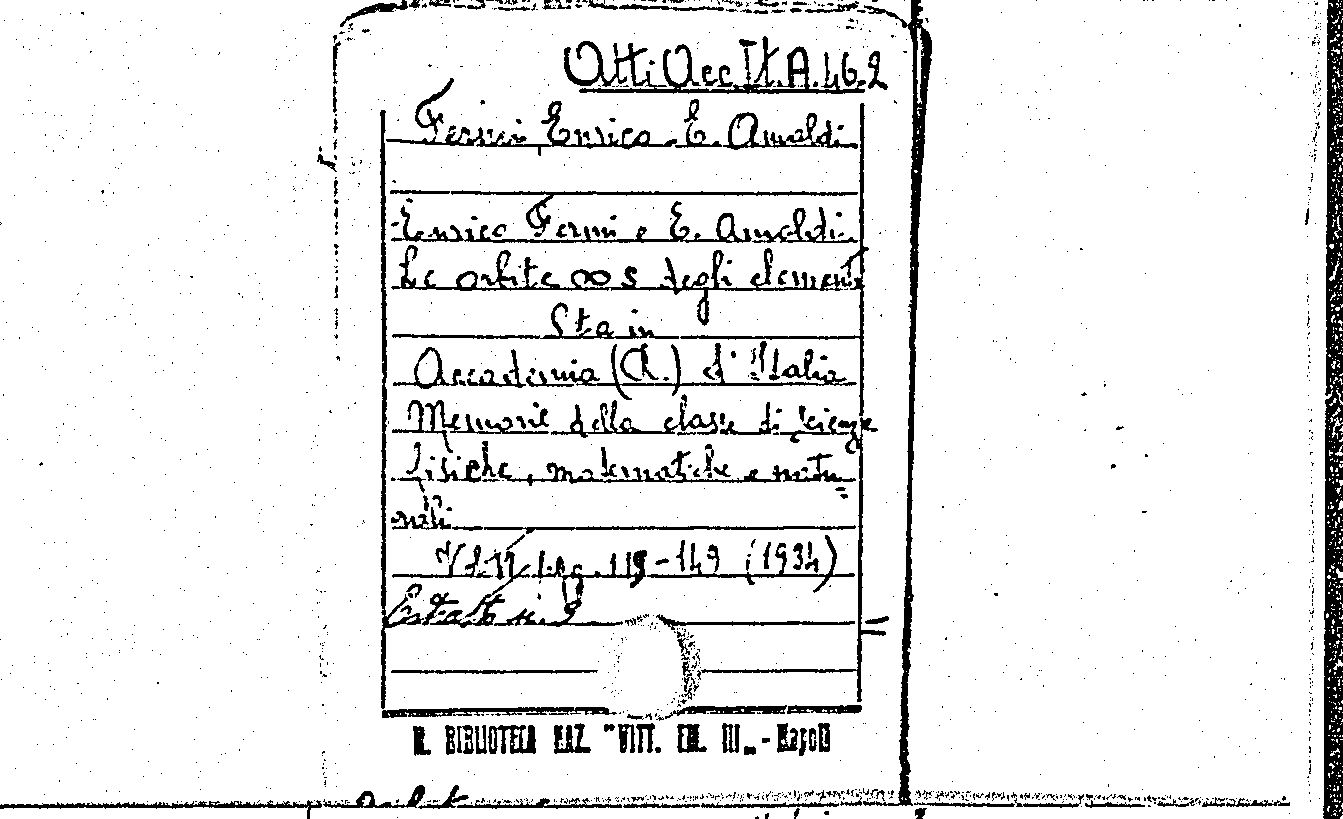 Atti Acc. It. A. 46.2
Fermi, Enrico - E. Amaldi.
Enrico Fermi e E. Amaldi.
Le orbite ∞ s degli elementi
Sta in
Accademia (R.) d'Italia
Memorie della classe di scienze
fisiche, matematiche e natu=
rali
Vol. VI pag. 119-149 (1934)
Estratto n. 2
R. BIBLIOTECA NAZ. "VITT. EM. III„ - Napoli